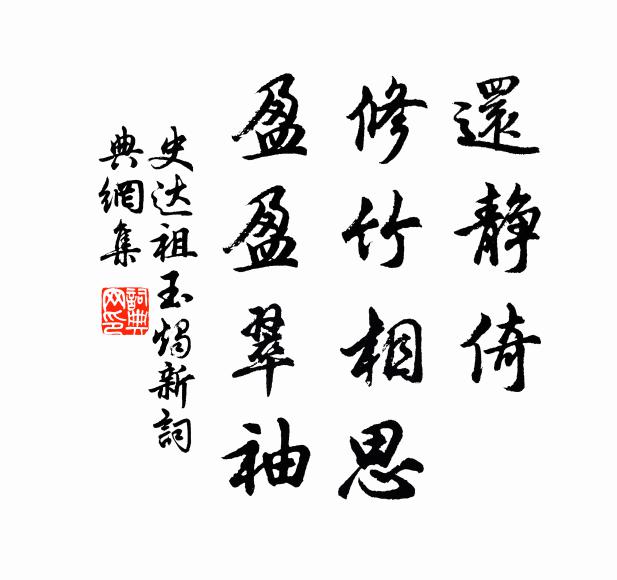 還静倚
修竹相思
盈盈翠袖
史达祖玉燭新詞
典網集
詞典
网印